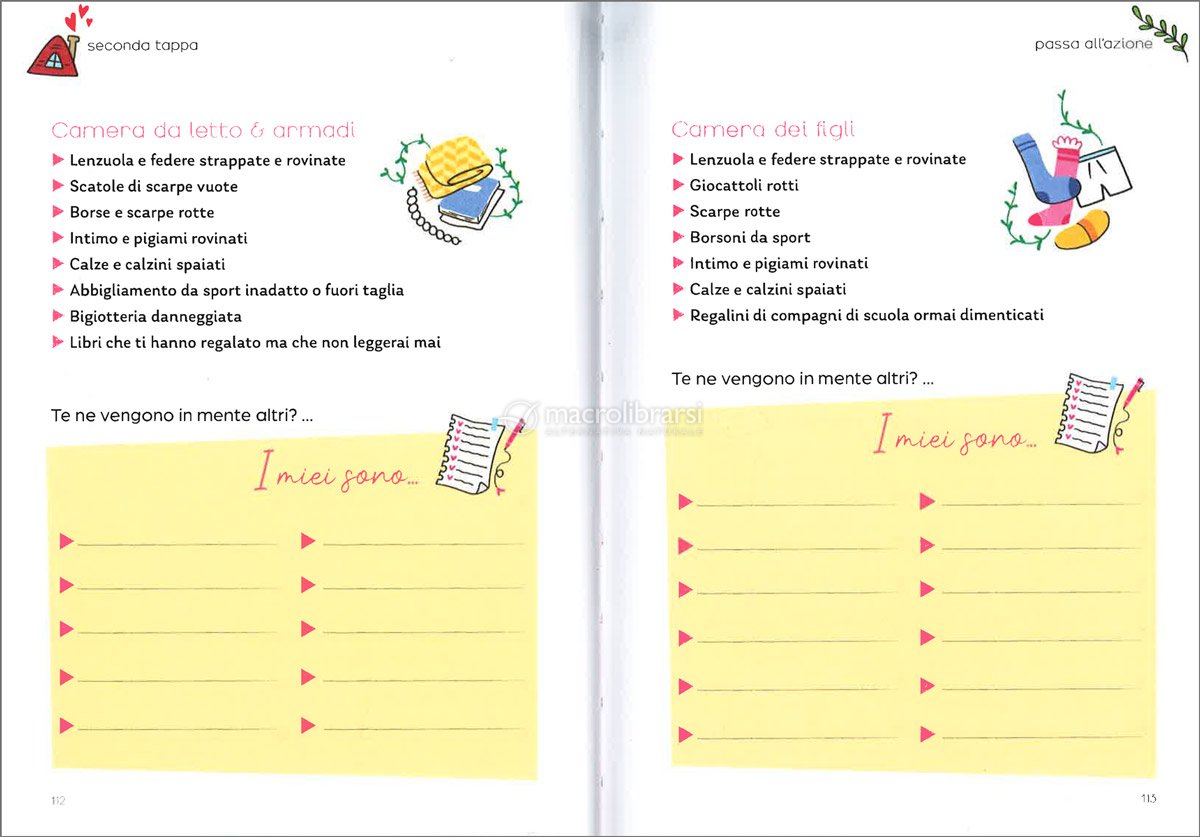 seconda tappa
Camera da letto & armadi
Lenzuola e federe strappate e rovinate
Scatole di scarpe vuote
Borse e scarpe rotte
Intimo e pigiami rovinati
Calze e calzini spaiati
Abbigliamento da sport inadatto o fuori taglia
Bigiotteria danneggiata
Libri che ti hanno regalato ma che non leggerai mai
Te ne vengono in mente altri? ...
I miei sono...
112
passa all'azione
Camera dei figli
Lenzuola e federe strappate e rovinate
Giocattoli rotti
Scarpe rotte
Borsoni da sport
Intimo e pigiami rovinati
Calze e calzini spaiati
Regalini di compagni di scuola ormai dimenticati
Te ne vengono in mente altri? ...
I miei sono...
113
macrolibrarsi
ALTERNATIVA NATURALE